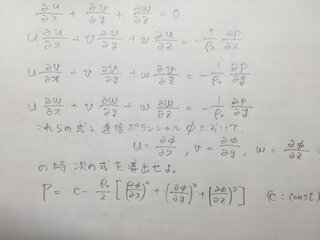 ∂u/∂x + ∂v/∂y + ∂w/∂z = 0
u ∂u/∂x + v ∂u/∂y + w ∂u/∂z = - 1/ρ₀ ∂p/∂x
u ∂v/∂x + v ∂v/∂y + w ∂v/∂z = - 1/ρ₀ ∂p/∂y
u ∂w/∂x + v ∂w/∂y + w ∂w/∂z = - 1/ρ₀ ∂p/∂z
これらの式と速度ポテンシャルφにおいて
u = ∂φ/∂x , v = ∂φ/∂y , w = ∂φ/∂z
の時次の式を導出せよ。
P = c - ρ₀/2 [(∂φ/∂x)² + (∂φ/∂y)² + (∂φ/∂z)²] (c: const)